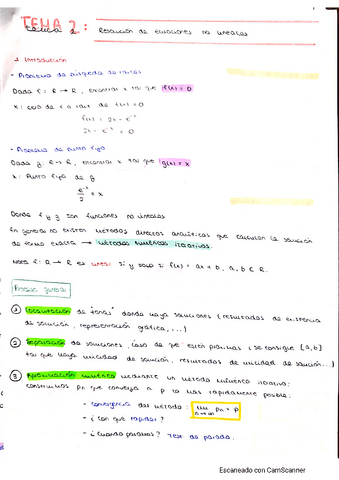 TEMA 2:
Resolución de ecuaciones no lineales
1. Introducción
- Problema de búsqueda de raíces
Dada f: R → R, encontrar x tal que f(x) = 0
x: cero de f o raíz de f(x) = 0
f(x) = 2x - e⁻ˣ
2x - e⁻ˣ = 0
- Problema de punto fijo
Dada g: R → R, encontrar x tal que g(x) = x
x: Punto fijo de g
e⁻ˣ/2 = x
Donde f y g son funciones no lineales
En general no existen métodos directos analíticos que calculen la solución
de forma exacta → métodos numéricos iterativos.
Nota f: R → R es lineal si y solo si f(x) = ax + b, a, b ∈ R.
Proceso general
① Localización de "zonas" donde haya soluciones (resultados de existencia
de solución, representación gráfica,...)
② Separación de soluciones, caso de que estén próximas (se consigue [a,b]
tal que haya unicidad de solución, resultados de unicidad de solución...)
③ Aproximación numérica mediante un método numérico iterativo:
construimos pn que converja a p lo más rápidamente posible:
- convergencia del método: lim n→∞ pn = p
- ¿Con qué rapidez?
- ¿Cuándo paramos? Test de parada.
Escaneado con CamScanner